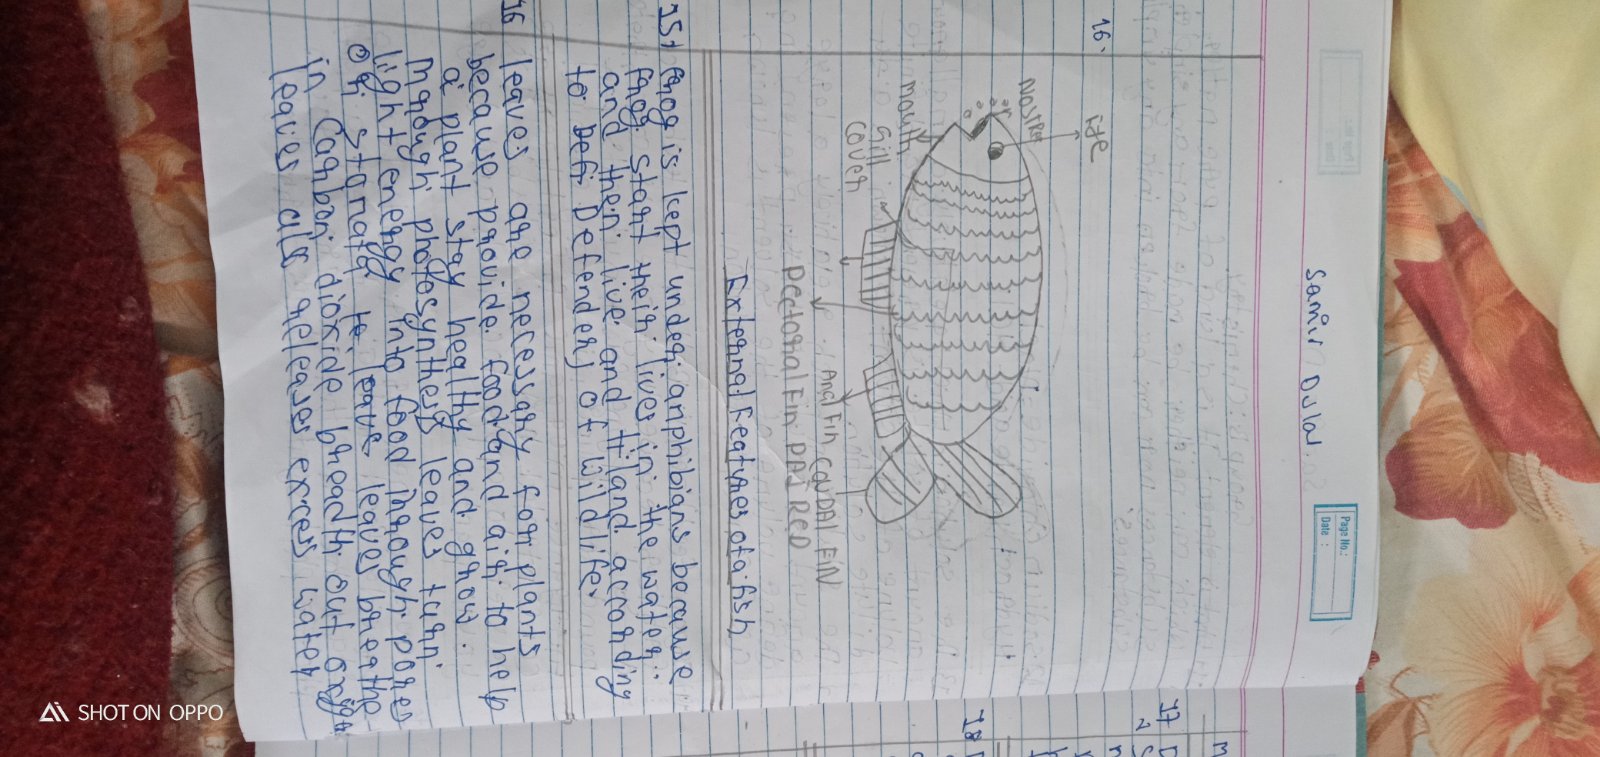 Samir Dulal
Page No.:
Date :
16.
EYE
Nostre
mouth
Gill
cover
Anal Fin CAUDAL FIN
pectoral Fin PAIRED
External Features of a fish
15. Frog is kept under amphibians because
frog start their lives in the water.
and then live and it land according
to Defi Defenders of wild life.
16 leaves are necessary for plants
because provide food and air to help
a plant stay healthy and grow.
Through photosynthesis leaves turn
light energy into food through pores
or stomata to leave leaves brethe
in Carbon dioxide breadth out oxygen
leaves als releases excess water
17
18
SHOT ON OPPO